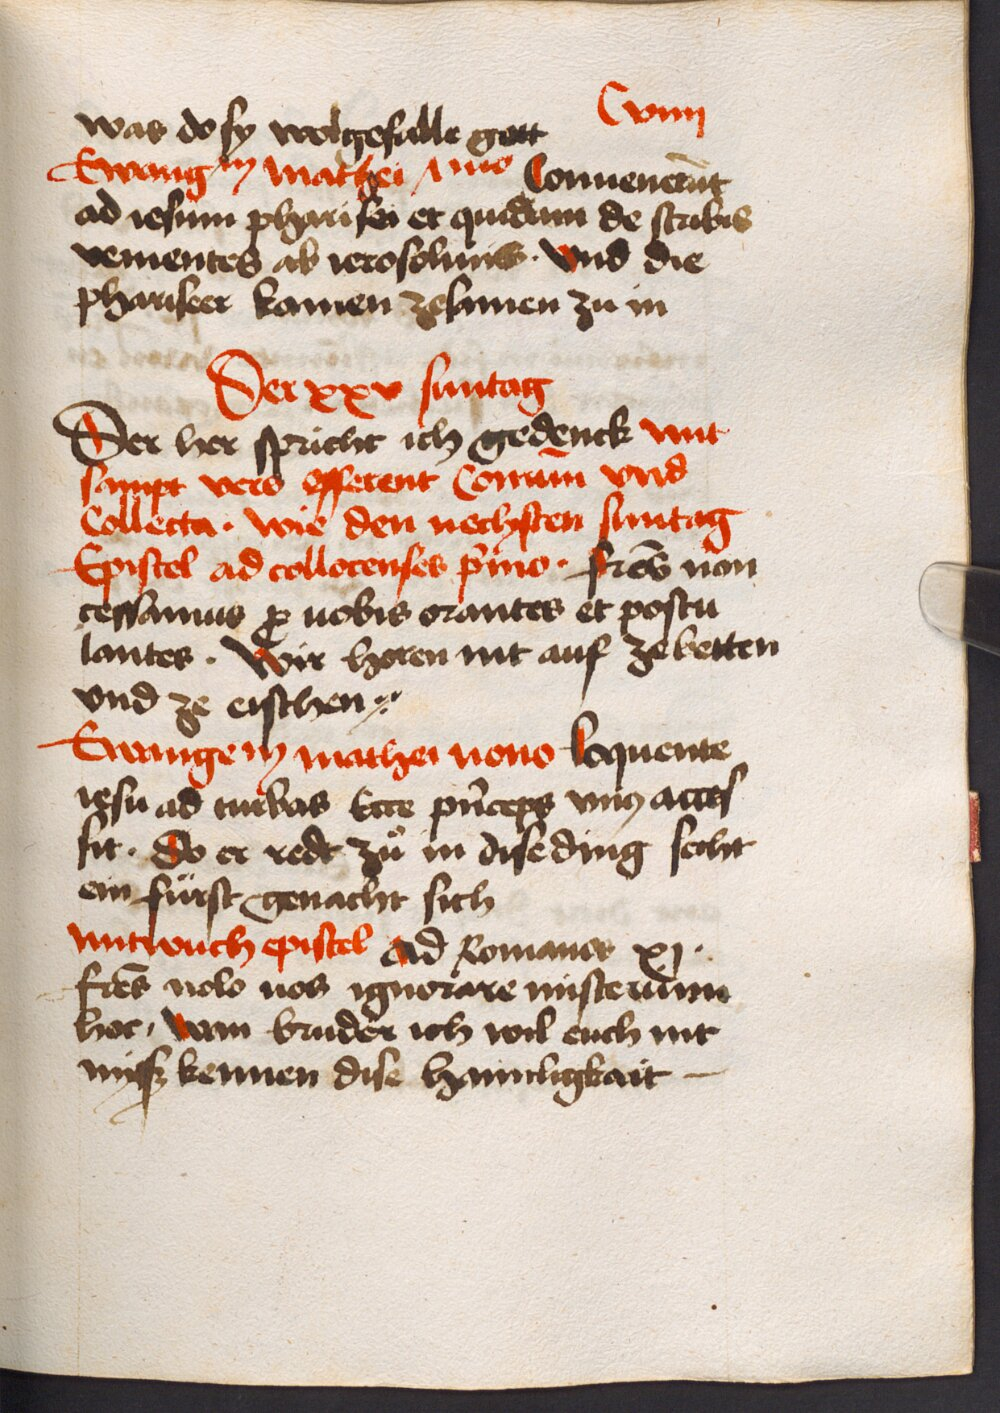 Cviiij
was do sy wolgefalle gott
Ewang ij mathei Conuenerūt
ad iesum pharisei et quidam de scribis
venientes ab ierosolimis. Vnd die
phariseer kamen zesamen zu in
Der xxv suntag
Der her spricht ich gedenck mit
sampt vers offerent Comūn vnd
Collecta. wie den nechsten suntag
Epistel ad collocenses p̄imo. fr̄es non
cessamus ꝓ uobis orantes et postu
lantes. Wir horen nit auf ze betten
vnd ze eischen
Ewange ij mathei nono loquente
iesu ad turbas Ecce p̄nceps vnꝰ acces
sit. Do er redt zů in dise ding secht
ein fürst genacht sich
mitwuch epistel Ad Romanos xj.
fr̄es nolo uos ignorare misterium
hoc, wan bruder ich wil euch nit
missz kennen dise haimligkait